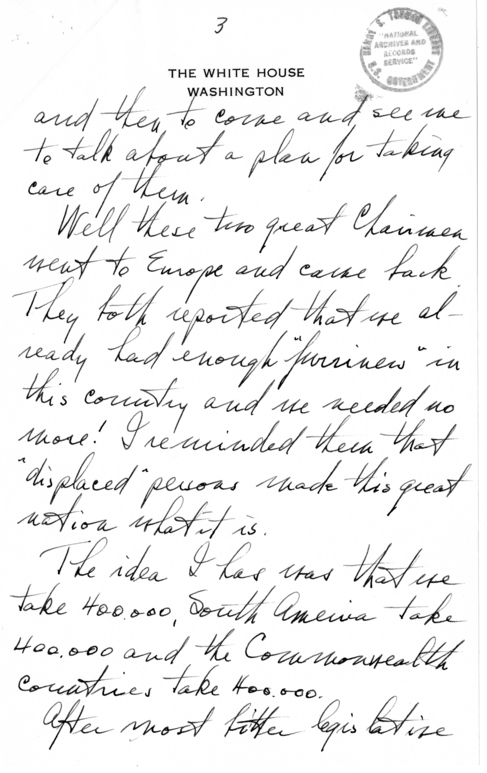 3
HARRY S. TRUMAN LIBRARY
"NATIONAL
ARCHIVES AND
RECORDS
SERVICE"
U.S. GOVERNMENT
THE WHITE HOUSE
WASHINGTON
and then to come and see me
to talk about a plan for taking
care of them.
Well these two great Chairmen
went to Europe and came back.
They both reported that we al-
ready had enough "furriners" in
this country and we needed no
more! I reminded them that
"displaced" persons made this great
nation what it is.
The idea I has was that we
take 400.000, South America take
400.000 and the Commonwealth
countries take 400.000.
After most bitter legislative